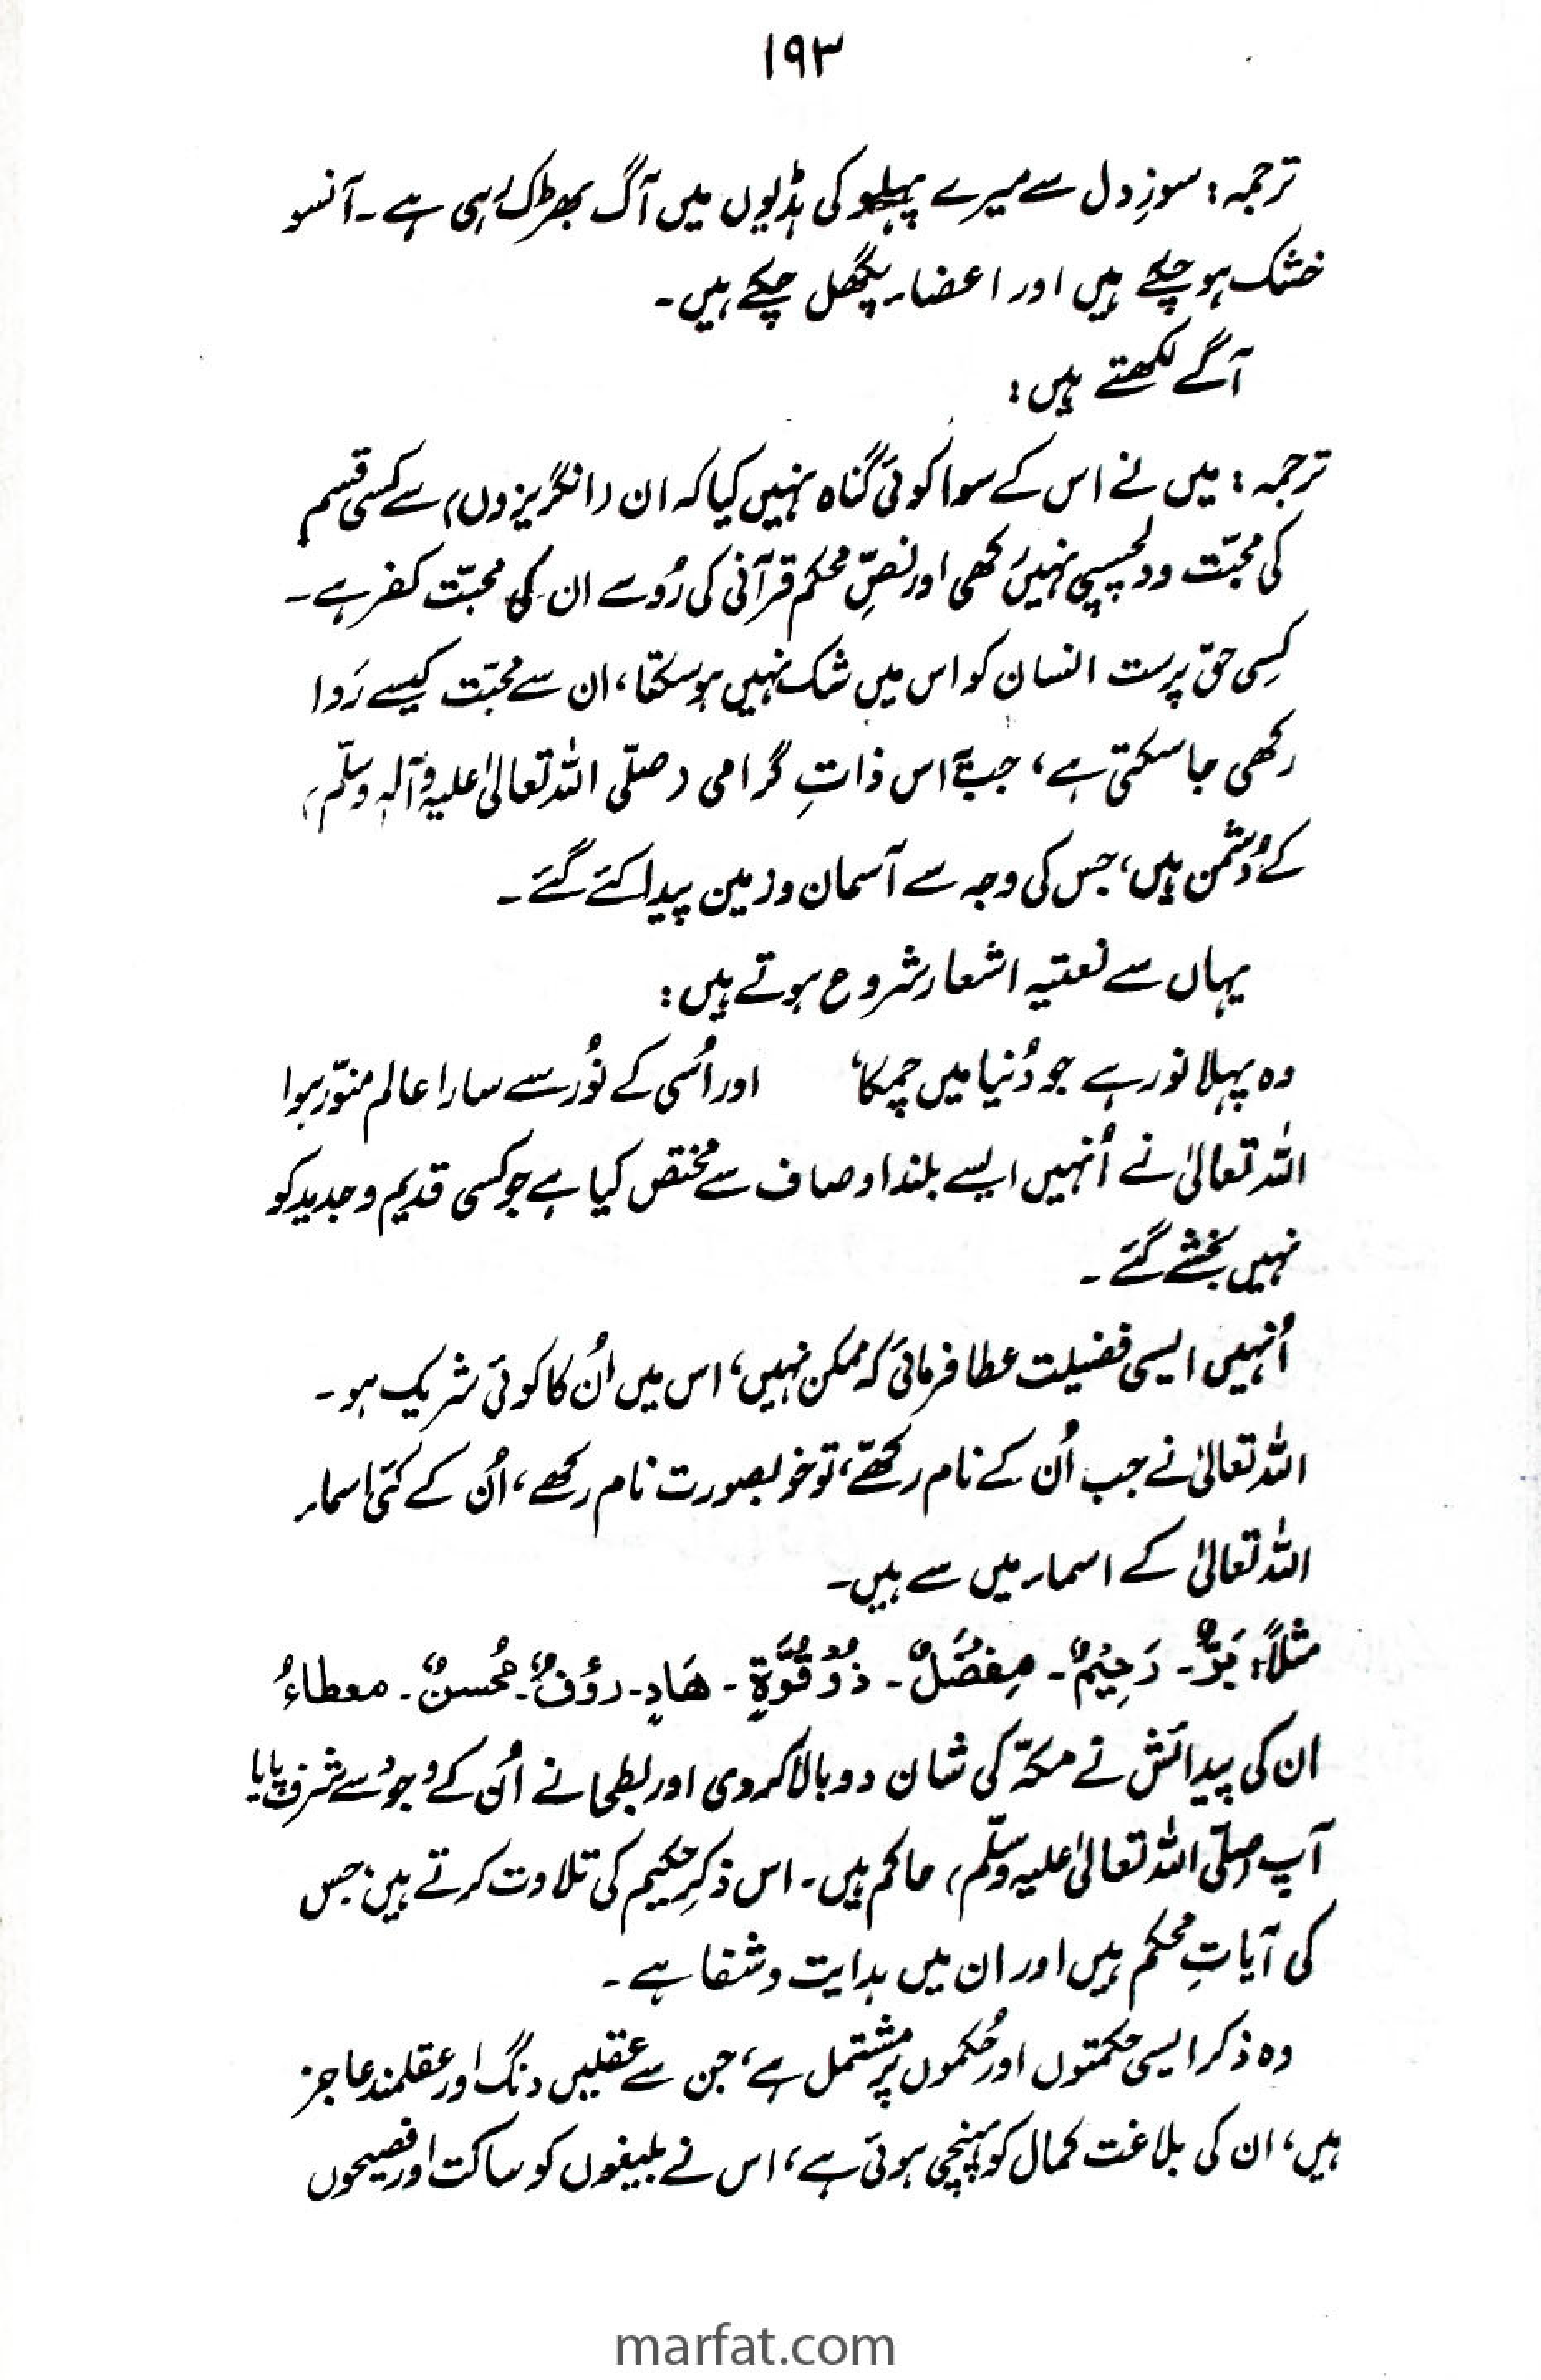 ۱۹۳
ترجمہ: سوزِ دل سے میرے پہلو کی ہڈیوں میں آگ بھڑک رہی ہے۔ آنسو
خشک ہو چکے ہیں اور اعضاء پگھل چکے ہیں۔
آگے لکھتے ہیں:
ترجمہ: میں نے اس کے سوا کوئی گناہ نہیں کیا کہ ان (انگریزوں) سے کسی قسم
کی محبّت و دلچسپی نہیں رکھی اور نصِّ محکم قرآنی کی رُو سے ان کی محبّت کفر ہے۔
کِسی حق پرست انسان کو اس میں شک نہیں ہو سکتا، ان سے محبّت کیسے رَوا
رکھی جا سکتی ہے، جب اس ذاتِ گرامی (صلّی اللہ تعالیٰ علیہ وآلہٖ وسلّم)
کے دُشمن ہیں، جس کی وجہ سے آسمان و زمین پیدا کئے گئے۔
یہاں سے نعتیہ اشعار شروع ہوتے ہیں:
وہ پہلا نور ہے جو دُنیا میں چمکا، اور اُسی کے نُور سے سارا عالم منوّر ہوا
اللہ تعالیٰ نے اُنہیں ایسے بلند اوصاف سے مختص کیا ہے جو کسی قدیم و جدید کو
نہیں بخشے گئے۔
اُنہیں ایسی فضیلت عطا فرمائی کہ ممکن نہیں، اس میں اُن کا کوئی شریک ہو۔
اللہ تعالیٰ نے جب اُن کے نام رکھّے، تو خوبصورت نام رکھے، اُن کے کئی اسماء
اللہ تعالیٰ کے اسماء میں سے ہیں۔
مثلاً: بَرٌّ۔ رَحِیْمٌ۔ مِفضَلٌ۔ ذُوْ قُوَّۃٍ۔ ھَادٍ۔ رؤفٌ۔ مُحسنٌ۔ معطاءُ
ان کی پیدائش نے مکّہ کی شان دوبالا کر دی اور بطحا نے اُن کے وجود سے شرف پایا
آپ (صلّی اللہ تعالیٰ علیہ وسلّم) حاکم ہیں۔ اس ذکرِ حکیم کی تلاوت کرتے ہیں، جس
کی آیاتِ محکم ہیں اور ان میں ہدایت و شفا ہے۔
وہ ذکر ایسی حکمتوں اور حُکموں پر مشتمل ہے، جن سے عقلیں دنگ اور عقلمند عاجز
ہیں، ان کی بلاغت کمال کو پہنچی ہوئی ہے، اس نے بلیغوں کو ساکت اور فصیحوں
marfat.com